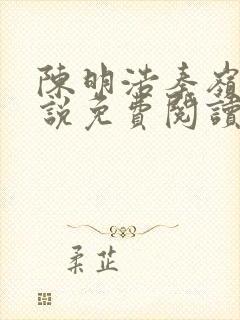 陳明浩秦嶺
說免費閱讀
柔芷